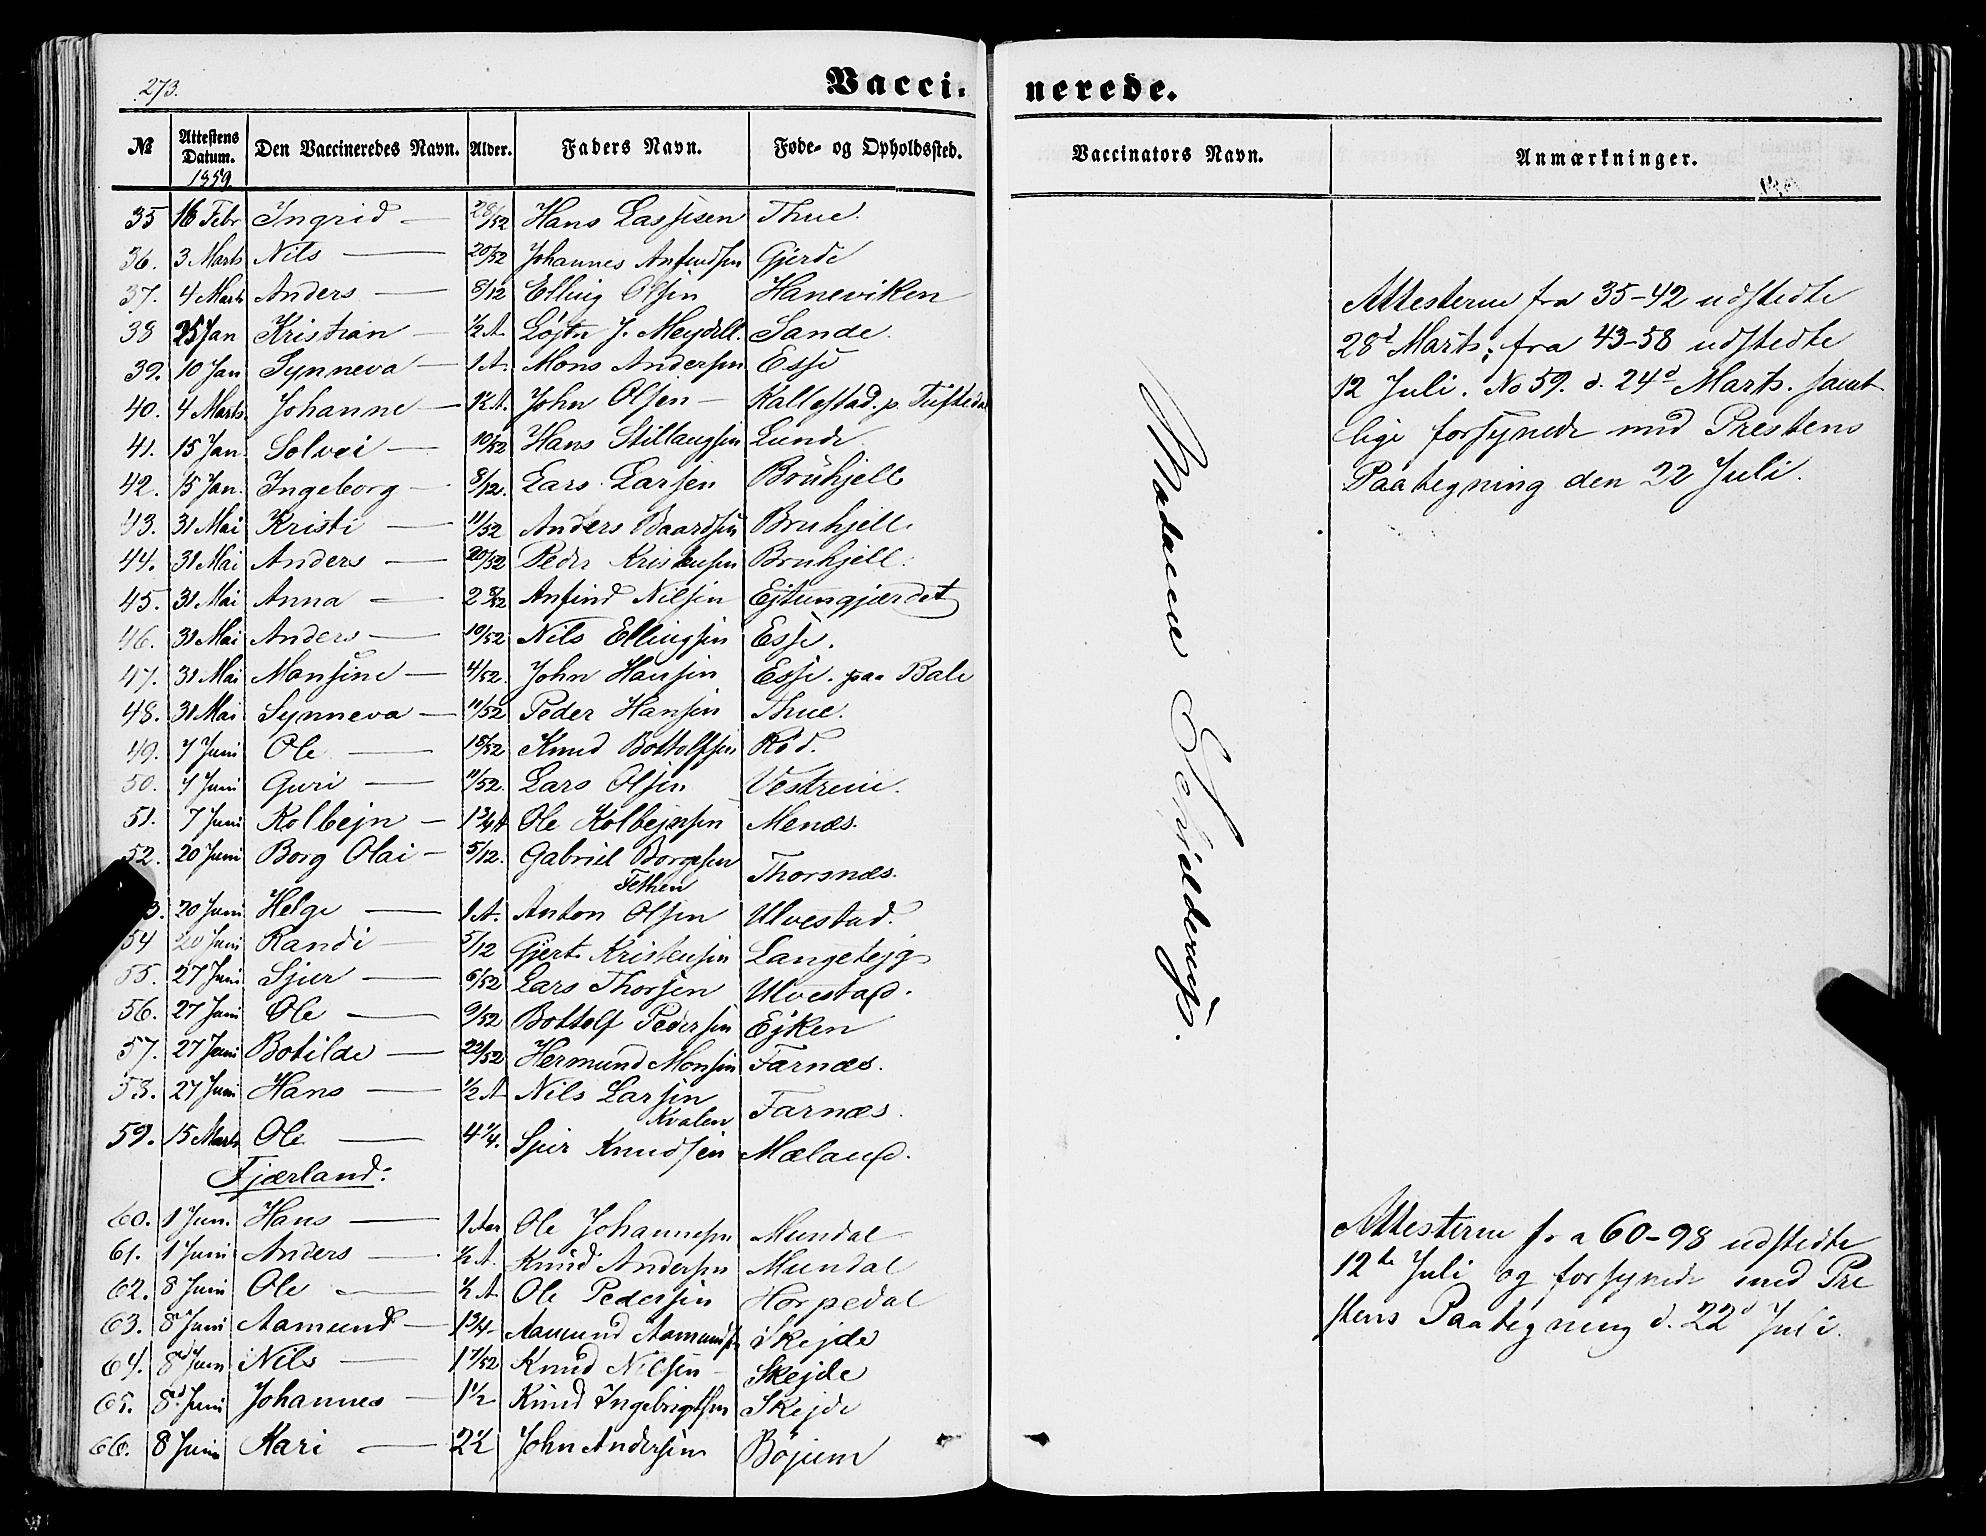 273.
Vaccinerede.
№ | Attestens Datum. 1859 | Den Vaccineredes Navn. | Alder. | Faders Navn. | Føde- og Opholdssted. | Vaccinators Navn. | Anmærkninger.
35 | 16 Febr | Ingrid — | 28/52 | Hans Lassesen | Thue.
36. | 3 Marts | Nils — | 20/52 | Johannes Anfindsen | Gjerde
37. | 4 Marts | Anders — | 8/12 | Elling Olsen | Haneviken
38 | 25 Jan | Kristian — | ½ A. | Løjtn J. Meydell. | Sande.
39. | 10 Jan | Synneva — | 1 A. | Mons Andersen | Esse
40. | 4 Marts. | Johanne — | ½ A. | John Olsen — | Kallestad. p. Tuftedal
41. | 15 Jan. | Solvei — | 10/52 | Hans Stillaugsen | Lunde.
42. | 15 Jan. | Ingeborg — | 8/12. | Lars Larsen | Bruhjell
43. | 31 Mai | Kristi — | 11/52 | Anders Baardsen | Bruhjell.
44. | 31 Mai | Anders — | 20/52 | Peder Kristensen | Bruhjell.
45. | 31 Mai | Anna — | 2 8/12 | Anfind Nilsen | Ejtungjærdet
46. | 31 Mai | Anders — | 19/52 | Nils Ellingsen | Esse.
47. | 31 Mai | Monsine — | 4/52. | John Hansen | Esse. paa Bale
48. | 31 Mai | Synneva — | 11/52 | Peder Hansen | Thue.
49. | 7 Juni | Ole — | 18/52 | Knud Bottolfsen | Rød.
50. | 7 Juni | Guri — | 11/52. | Lars Olsen | Vestreim.
51. | 7 Juni | Kolbejn — | 1¾ A | Ole Kolbejnsen | Menæs.
52. | 20 Juni | Borg Olai — | 5/12. | Gabriel Borgesen Fethen | Thorsnæs.
3. | 20 Juni | Helge — | 1 A. | Anton Olsen | Ulvestad.
54 | 20 Juni | Randi — | 5/12 | Gjert Kristensen | Langetejg
55. | 27 Juni | Sjur — | 6/52 | Lars Thorsen | Ulvestad.
56. | 27 Juni | Ole — | 9/52 | Bottolf Pedersen | Ejken
57. | 27 Juni | Botilde — | 22/52 | Hermund Monsen | Farnæs.
58. | 27 Juni | Hans — | ½ A | Nils Larsen Kvalen | Farnæs.
59. | 15 Marts | Ole — | 4¼. | Sjur Knudsen | Mæland.
Fjærland:
60. | 1 Jun. | Hans — | 1 Aar | Ole Johannesen | Mundal
61. | 1 Juni | Anders — | ½ A. | Knud Andersen | Mundal
62. | 8 Juni | Ole — | ½ A | Ole Pedersen | Horpedal
63. | 8d Juni | Aamund — | 1¾ | Aamund Aamundsen | Skejde
64. | 8d Juni | Nils — | 1 7/52 | Knud Nilsen — | Skejde
65. | 8d Juni | Johannes — | 1½ | Knud Ingebrigtsen | Skejde
66. | 8 Juni | Kari — | 2½ | John Andersen | Bøjum
Madame
Attesterne fra 35-42 udstedte
28d Marts; fra 43-58 udstedte
12 Juli. No 59. d. 24d Marts. samt
lige forsynede med Prestens
Paategning den 22 Juli.
Attesterne fra 60-98 udstedte
12te Juli og forsynede med Pre
stens Paategning d. 22d Juli.